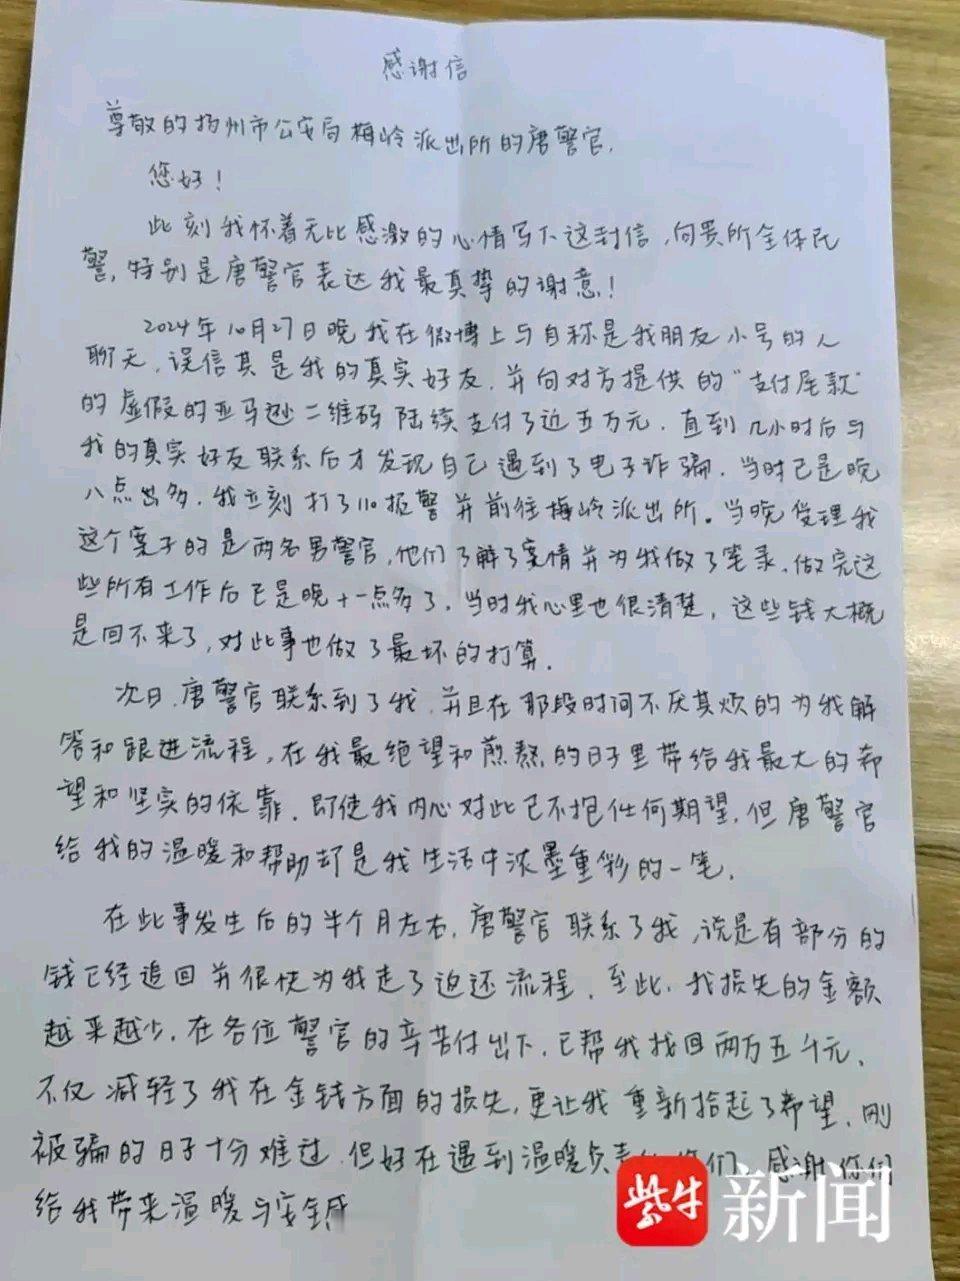 感谢信
尊敬的扬州市公安局梅岭派出所的唐警官,
您好!
此刻我怀着无比感激的心情写下这封信,向贵所全体民
警,特别是唐警官表达我最真挚的谢意!
2024年10月27日晚我在微博上与自称是我朋友小号的人
聊天,误信其是我的真实好友,并向对方提供的"支付尾款"
的虚假的亚马逊二维码陆续支付了近五万元.直到几小时后与
我的真实好友联系后才发现自己遇到了电子诈骗.当时已是晚
八点出多.我立刻打了110报警并前往梅岭派出所。当晚受理我
这个案子的是两名男警官,他们了解了案情并为我做了笔录.做完这
些所有工作后已是晚十一点多了.当时我心里也很清楚,这些钱大概
是回不来了,对此事也做了最坏的打算.
次日,唐警官联系到了我,并且在那段时间不厌其烦的为我解
答和跟进流程,在我最绝望和煎熬的日子里带给我最大的希
望和坚实的依靠.即使我内心对此已不抱任何期望,但唐警官
给我的温暖和帮助却是我生活中浓墨重彩的一笔.
在此事发生后的半个月左右,唐警官联系了我,说是有部分的
钱已经追回并很快为我走了追还流程.至此,我损失的金额
越来越少.在各位警官的辛苦付出下,已帮我找回两万五千元.
不仅减轻了我在金钱方面的损失,更让我重新拾起了希望.刚
被骗的日子十分难过,但好在遇到温暖负责的你们,感谢你们
给我带来温暖与安全感
紫牛新闻